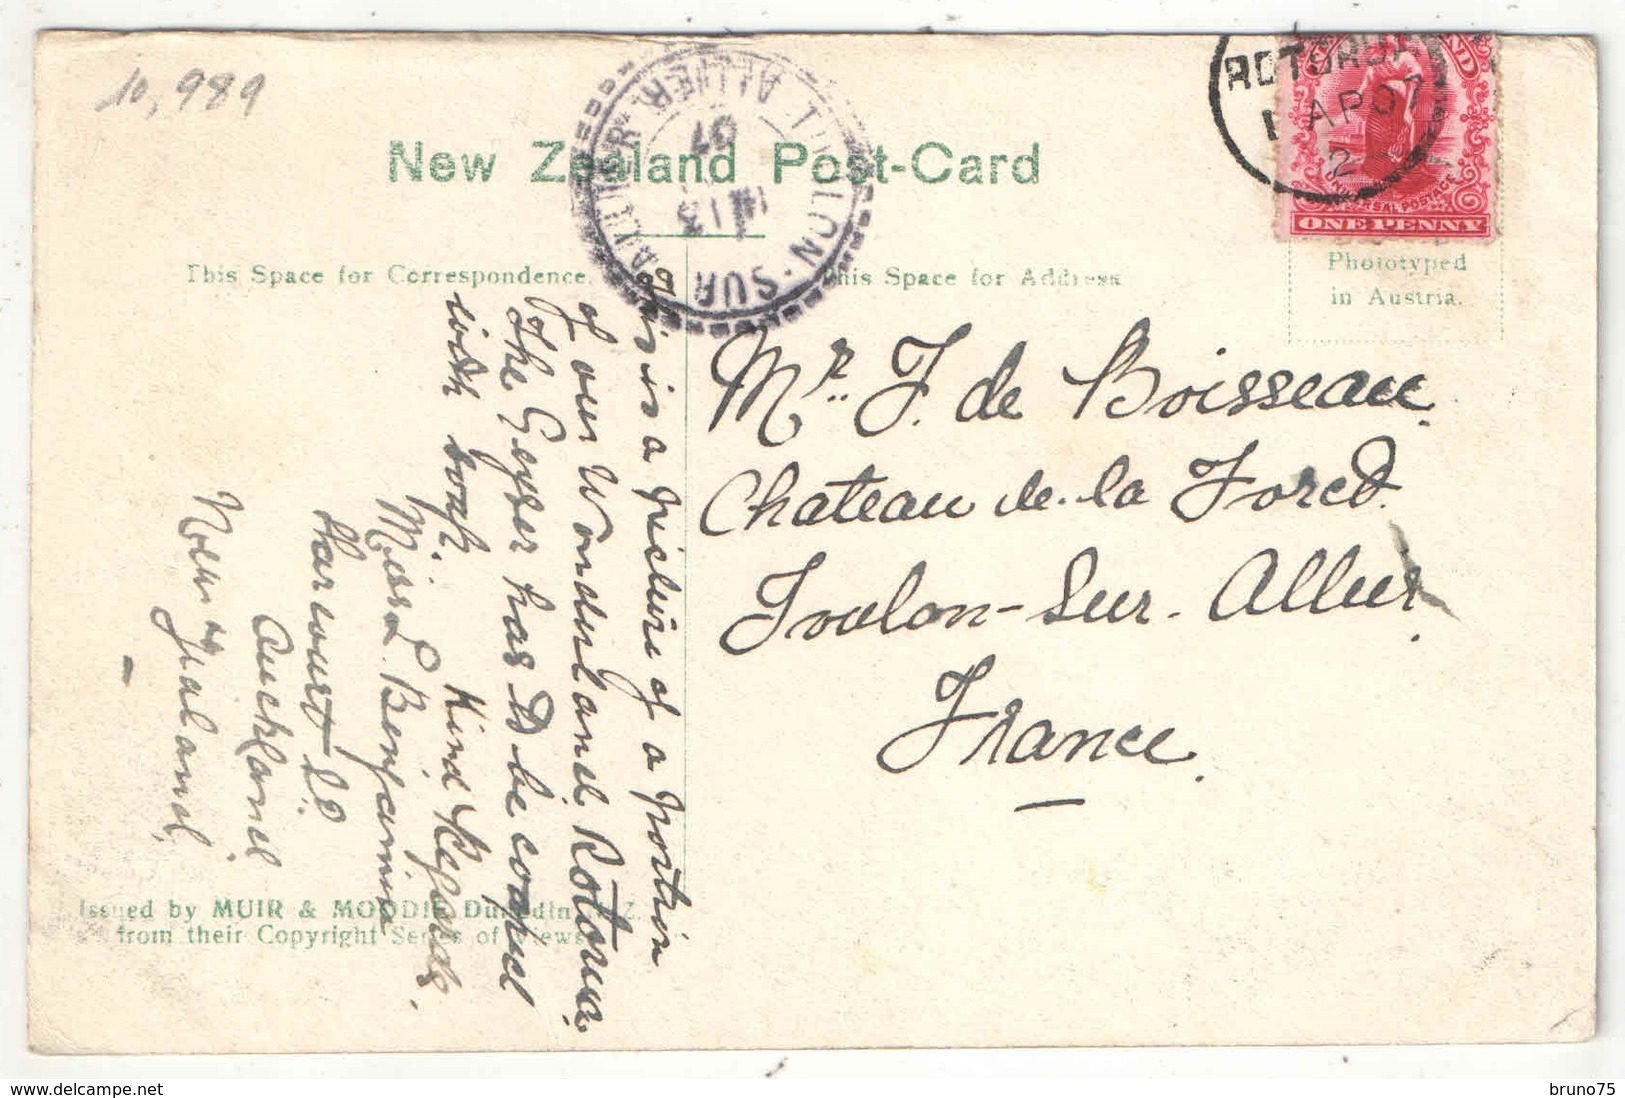 10,989
New Zealand Post-Card
This Space for Correspondence.
This Space for Address
Phototyped
in Austria.
ROTORUA
1 AP 07
2
UNIVERSAL POSTAGE
ONE PENNY
TOULON-SUR-ALLIER
ALLIER
13
07
Mr. J. de Boisseau.
Chateau de la Foret.
Toulon-Sur-Allier
France.
This is a picture of a portion
of our Wonderland Rotorua.
The Geyser has to be coaxed
with soap.
Kind Regards.
Miss L. Benjamin
Harcourt St.
Auckland
New Zealand.
Issued by MUIR & MOODIE Dunedin N.Z.
from their Copyright Series of Views
bruno75